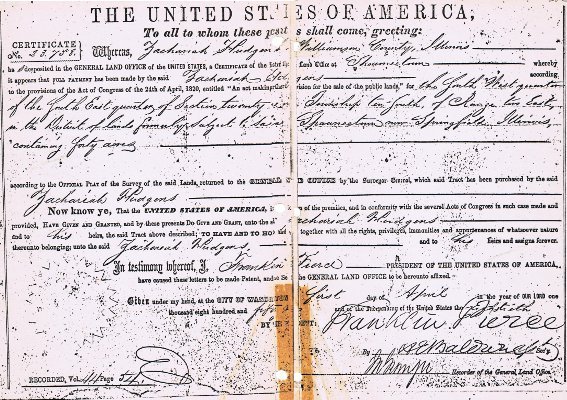 THE UNITED ST S OF AMERICA,
To all to whom these s shall come, greeting:
CERTIFICATE
No. 33.758. Whereas, Zachariah Hudgens Williamson County, Illinois
ha deposited in the GENERAL LAND OFFICE of the UNITED STATES, a Certificate of the Land Office at Shawneetown whereby
it appears that FULL PAYMENT has been made by the said Zachariah according
to the provisions of the Act of Congress of the 24th of April, 1820, entitled "An act making vision for the sale of the public lands," for the South West quarter
of the South East quarter of Section twenty in Township ten South, of Range two East,
in the District of lands formerly Subject to Sale Shawneetown now Springfield, Illinois,
containing forty acres
according to the OFFICIAL PLAT of the Survey of the said Lands, returned to the GENERAL OFFICE by the Surveyor General, which said Tract has been purchased by the said
Zachariah Hudgens
Now know ye, That the UNITED STATES OF AMERICA, of the premises, and in conformity with the several Acts of Congress in such case made and
provided, HAVE GIVEN AND GRANTED, and by these presents DO GIVE AND GRANT, unto the Zachariah Hudgens
and to his heirs, the said Tract above described; TO HAVE AND TO HO together with all the rights, privileges, immunities and appurtenances of whatsoever nature
thereunto belonging; unto the said Zachariah Hudgens and to his heirs and assigns forever.
In testimony whereof, I, Franklin Pierce PRESIDENT OF THE UNITED STATES OF AMERICA,
have caused these letters to be made Patent, and GENERAL LAND OFFICE to be hereunto affixed.
Given under my hand, at the CITY OF WASH first day of April in the year of OUR LORD one
thousand eight hundred and and of the Independence of the United States the eightieth
BY THE Franklin Pierce
By Baldwin Sec'y
Recorder of the General Land Office.
RECORDED, Vol. 44 Page 54